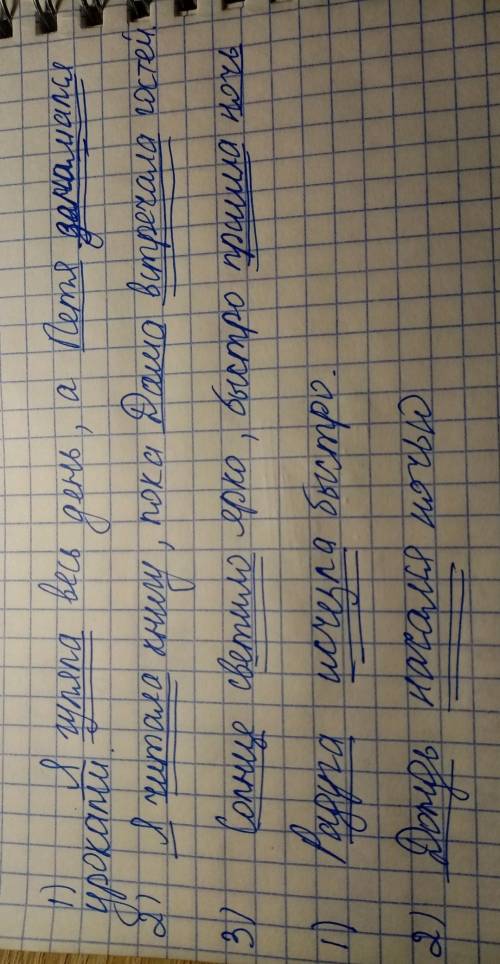 1) Я гуляла весь день, а Петя занимался
уроками.
2) Я читала книгу, пока Даша встречала гостей
3) Солнце светило ярко, быстро пришла ночь
1) Радуга исчезла быстро.
2) Дождь начался ночью